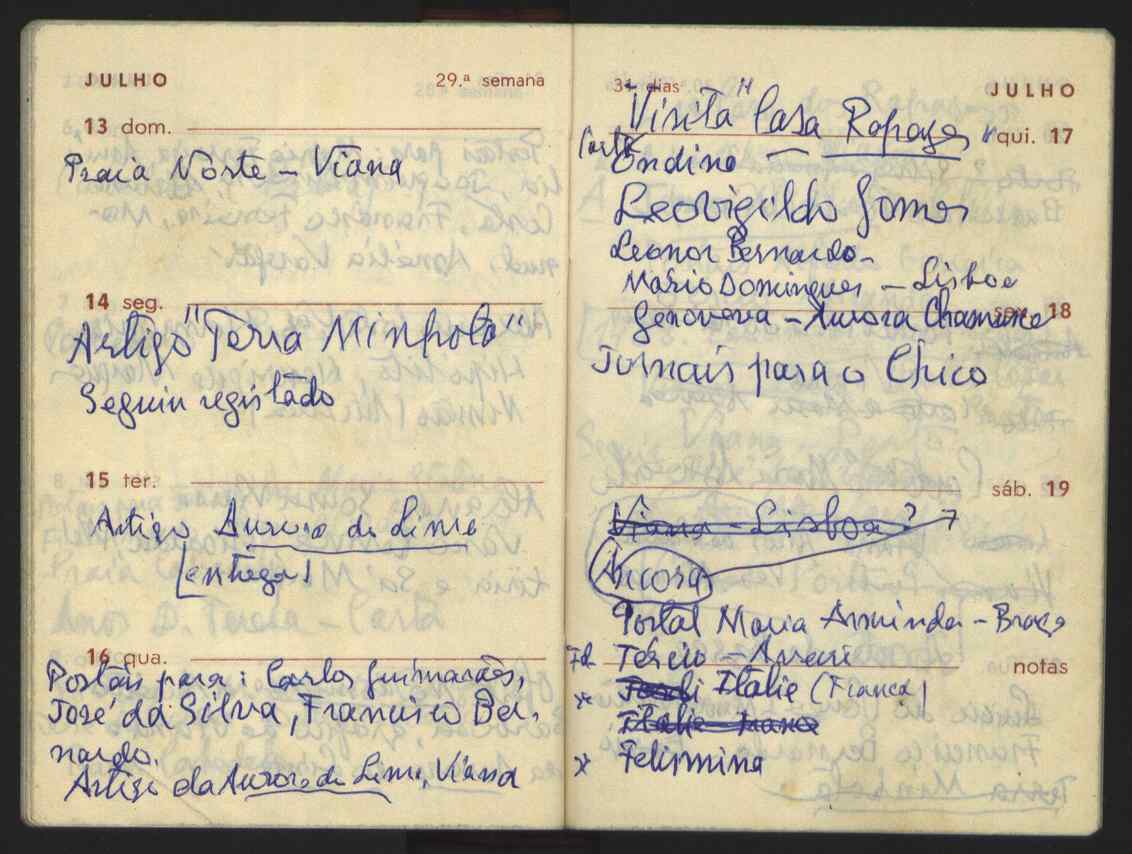 JULHO 29.ª semana
13 dom.
Praia Norte – Viana
14 seg.
Artigo "Terra Minhota"
Seguiu registado
15 ter.
Artigo Aurora do Lima
[entrega!
16 qua.
Postais para: Carlos Guimarães,
José da Silva, Francisco Ber-
nardo.
Artigo da Aurora do Lima, Viana
31 dias JULHO
Visita "Casa Rapazes"
qui. 17
Carta Ondina
Leovigildo Gomes
Leonor Bernardo –
Mário Domingues – Lisboa
sex. 18
Genoveva – Aurora
Jornais para o Chico
sáb. 19
Viana – Lisboa ? 7
Âncora
Postal Maria Arminda – Braga
Tel. Tércio –
notas
x Itália (França)
Itália
x Felismina